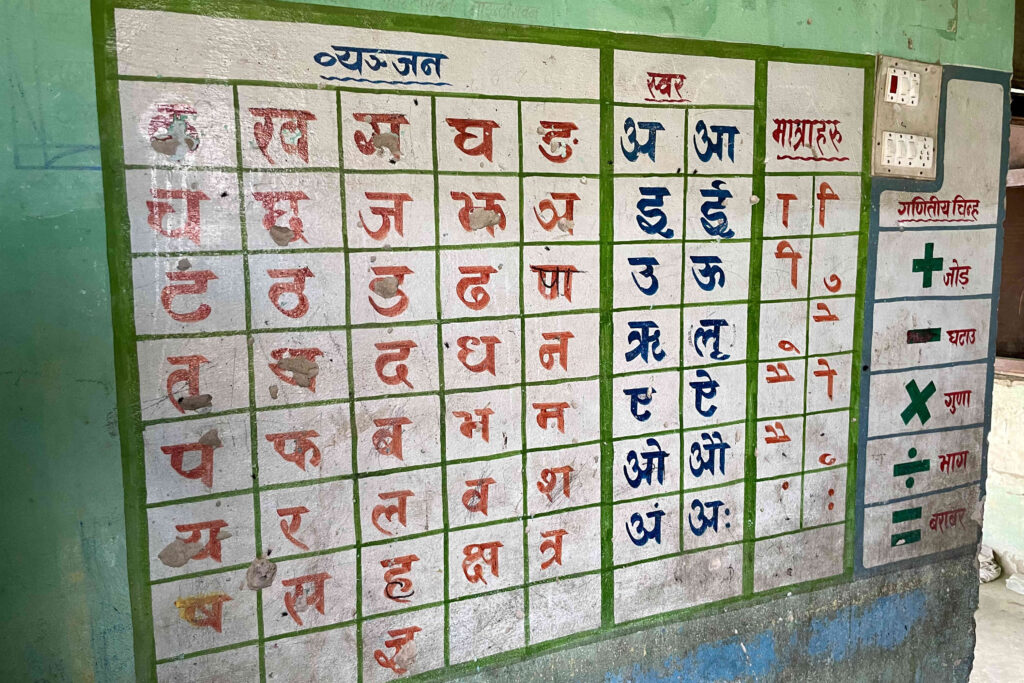 व्यञ्जन
क ख ग घ ङ
च छ ज झ ञ
ट ठ ड ढ ण
त थ द ध न
प फ ब भ म
य र ल व श
ष स ह क्ष त्र
ज्ञ
स्वर
अ आ
इ ई
उ ऊ
ऋ लृ
ए ऐ
ओ औ
अं अः
मात्राहरु
ा ि
ी ु
ू ृ
े ै
ो ौ
ं ः
गणितीय चिन्ह
+ जोड़
− घटाउ
× गुणा
÷ भाग
= बराबर